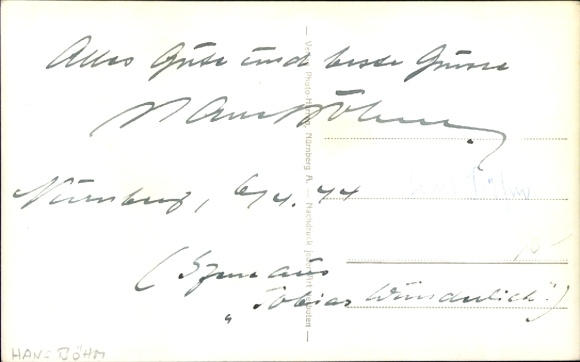 Alles Gute und beste Grüsse
Hans Böhm
Nürnberg, 6/4. 44
(Szene aus
„Tobias Wunderlich")
Nürnberg A. Nachdruck jeder Art verboten —
HANS BÖHM